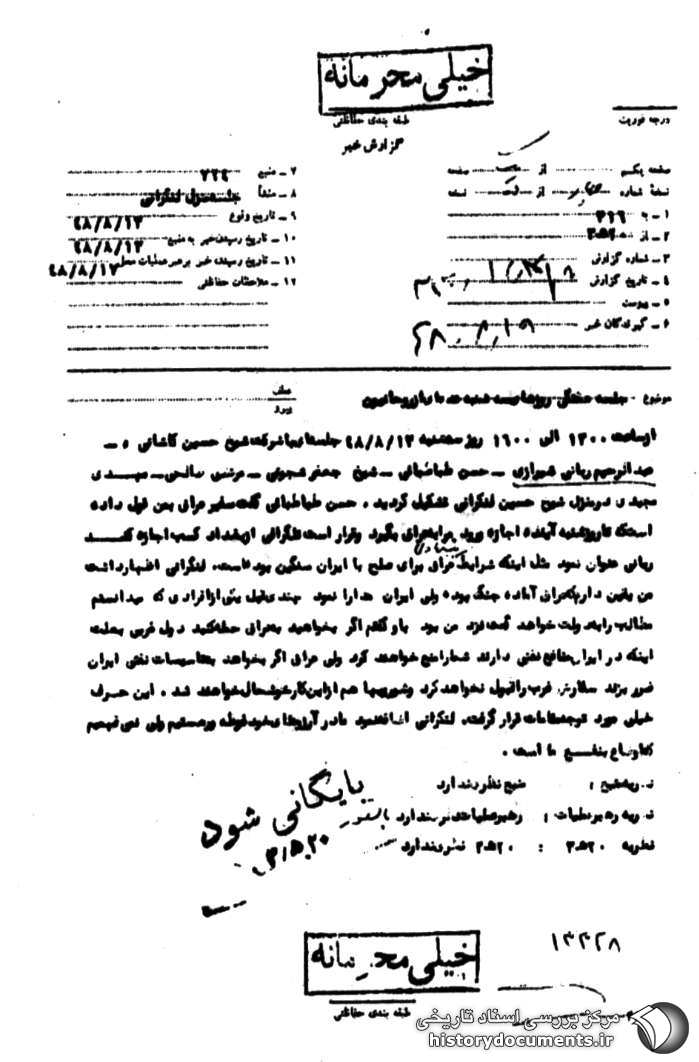 خیلی محرمانه
طبقه بندی حفاظتی
درجه فوریت
گزارش خبر
صفحه یکم از صفحه
نسخه شماره از نسخه
۱ ـ به ۳۱۶
۲ ـ از ۲۰ه۳
۳ ـ شماره گزارش
۴ ـ تاریخ گزارش
۵ ـ پیوست
۶ ـ گیرندگان خبر ۴۸/۸/۱۹
۷ ـ منبع
۸ ـ منشأ جلسه منزل لنکرانی
۹ ـ تاریخ وقوع ۴۸/۸/۱۳
۱۰ ـ تاریخ رسیدن خبر به منبع ۴۸/۸/۱۳
۱۱ ـ تاریخ رسیدن خبر به رهبر عملیات محل ۴۸/۸/۱۷
۱۲ ـ ملاحظات حفاظتی
موضوع ـ جلسه هفتگی روزهای سه شنبه
عطف
پیرو
از ساعت ۱۴۰۰ الی ۱۶۰۰ روز سه‌شنبه ۴۸/۸/۱۳ جلسه‌ای با شرکت شیخ حسین کاشانی و ـ
عبدالرحیم ربانی شیرازی ـ حسن طباطبائی ـ شیخ جعفر شجونی ـ مرتضی صالحی ـ مهدی
مجیدی در منزل شیخ حسین لنکرانی تشکیل گردید . حسن طباطبائی گفت سفیر عراق بمن قول داده
است که تا روز شنبه آینده اجازه ورود برای بگیرد و قرار است تلگرافی از بغداد کسب اجازه کند
ربانی عنوان نمود مثل اینکه شرایط پیشنهادی عراق برای صلح با ایران سنگین بوده است. لنکرانی اظهار داشت
من یقین دارم که عراق آماده جنگ بوده ولی ایران مدارا نمود چندی قبل یکی از افرادی که میدانستم
مطالب را به دولت خواهد گفت نزد من بود باو گفتم اگر بخواهید به عراق حمله کنید دول غربی بعلت
اینکه در ایران منافع نفتی دارند شما را منع خواهند کرد ولی عراق اگر بخواهد به تاسیسات نفتی ایران
ضرر بزند سفارش غرب را قبول نخواهد کرد و شوروی‌ها هم از این کار خوشحال خواهند شد . این حرف
خیلی مورد توجه مقامات قرار گرفت. لنکرانی اضافه نمود ما در آرزوهای خود غوطه‌ور هستیم ولی نمی‌فهمیم
که اوضاع بنفع ما است .
نظریه منبع : منبع نظر ندارد
نظریه رهبر عملیات : رهبر عملیات نظر ندارد
نظریه ۲۰ه۳ : ۲۰ه۳ نظر ندارد
بایگانی شود
۱۳۴۲۸
خیلی محرمانه
طبقه بندی حفاظتی
مرکز بررسی اسناد تاریخی
historydocuments.ir